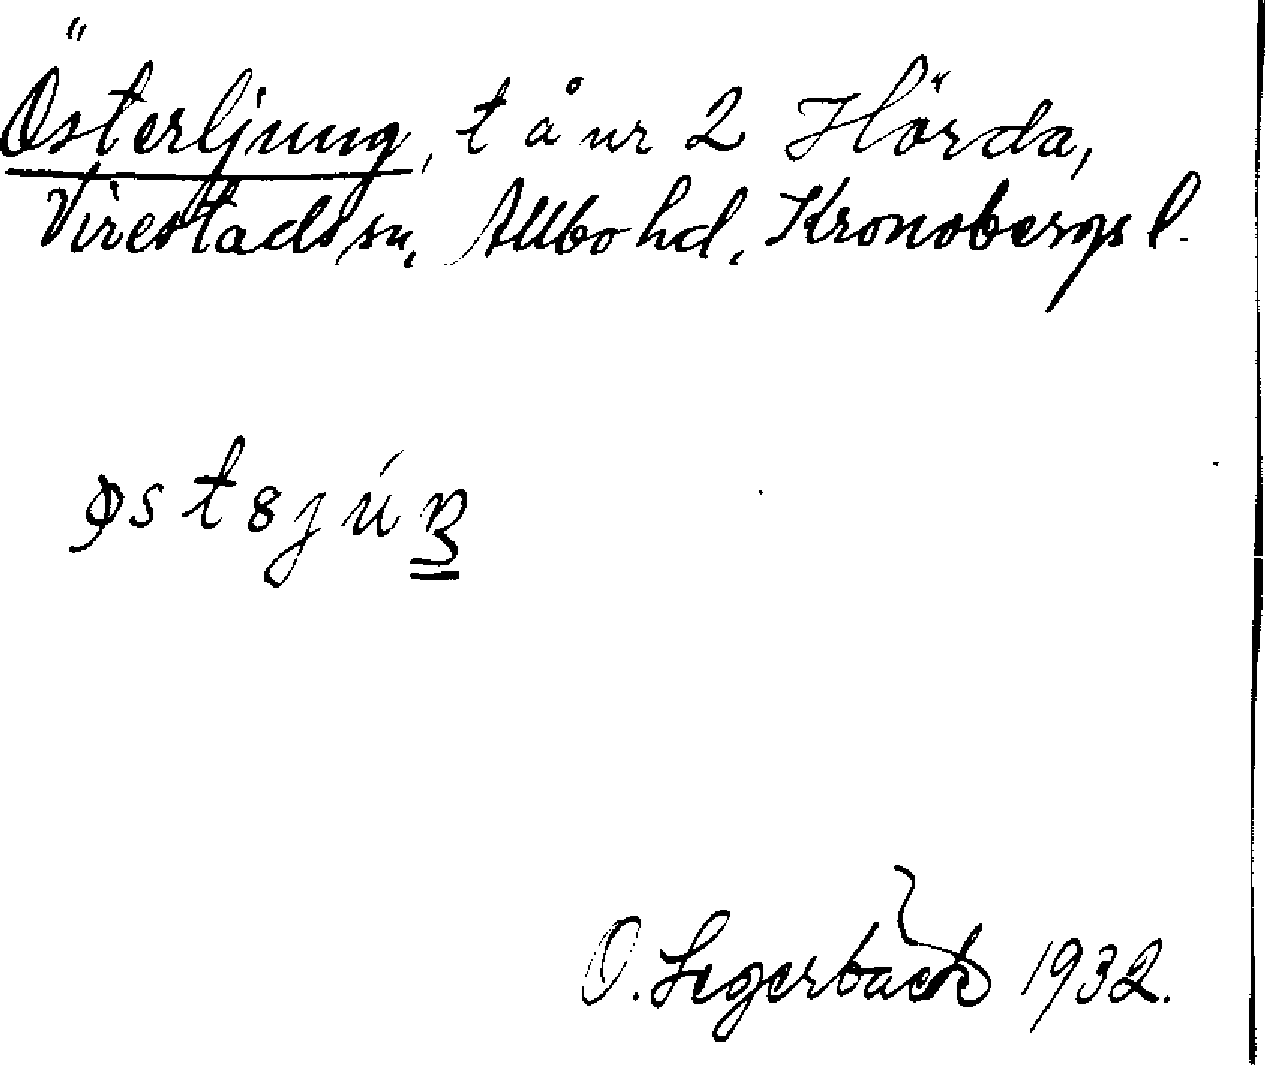 Österljung, t å nr 2 Hörda,
Virestads sn, Allbo hd, Kronobergs l.
O. Segerbäck 1932.